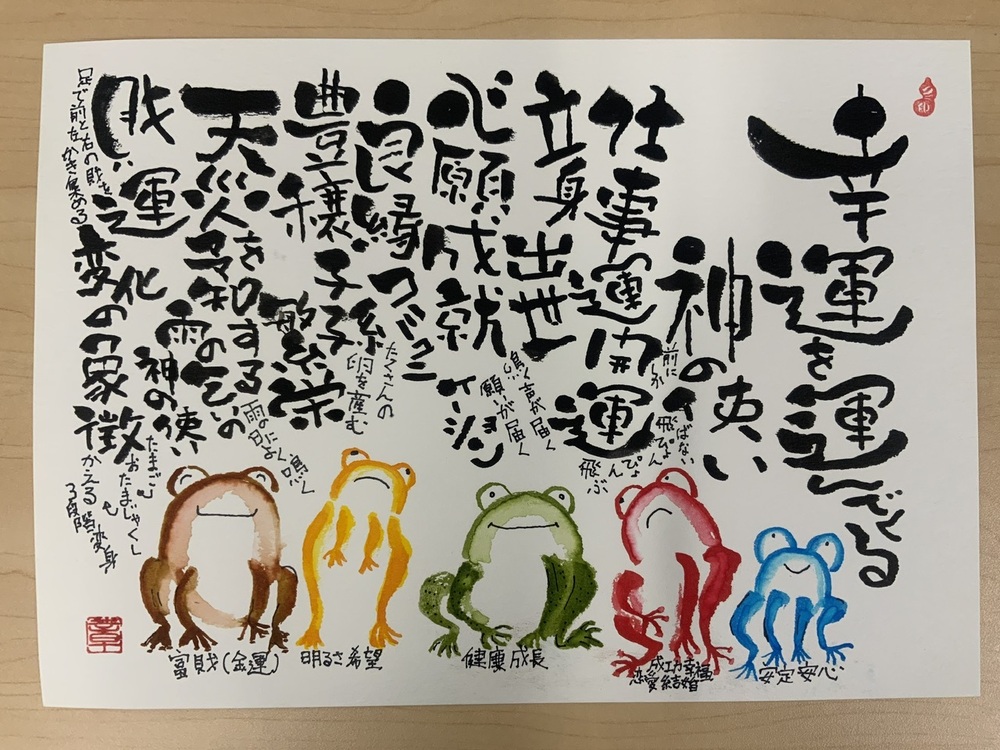 幸運を運んでくる
神の使い
仕事運開運
前にしか
飛ばない
ぴょんぴょん
飛ぶ
立身出世
心願成就
鳴く声が届く
願いが届く
良縁
ケーション
豊穣 子孫繁栄
たくさんの
卵を産む
天災を予知する
雨の日によく鳴く
雨乞いの
神の使い
財運
かき集める
変化の象徴
たまご
おたまじゃくし
かえる
3段階変身
富財(金運)
明るさ希望
健康成長
成功幸福
恋愛結婚
安定安心